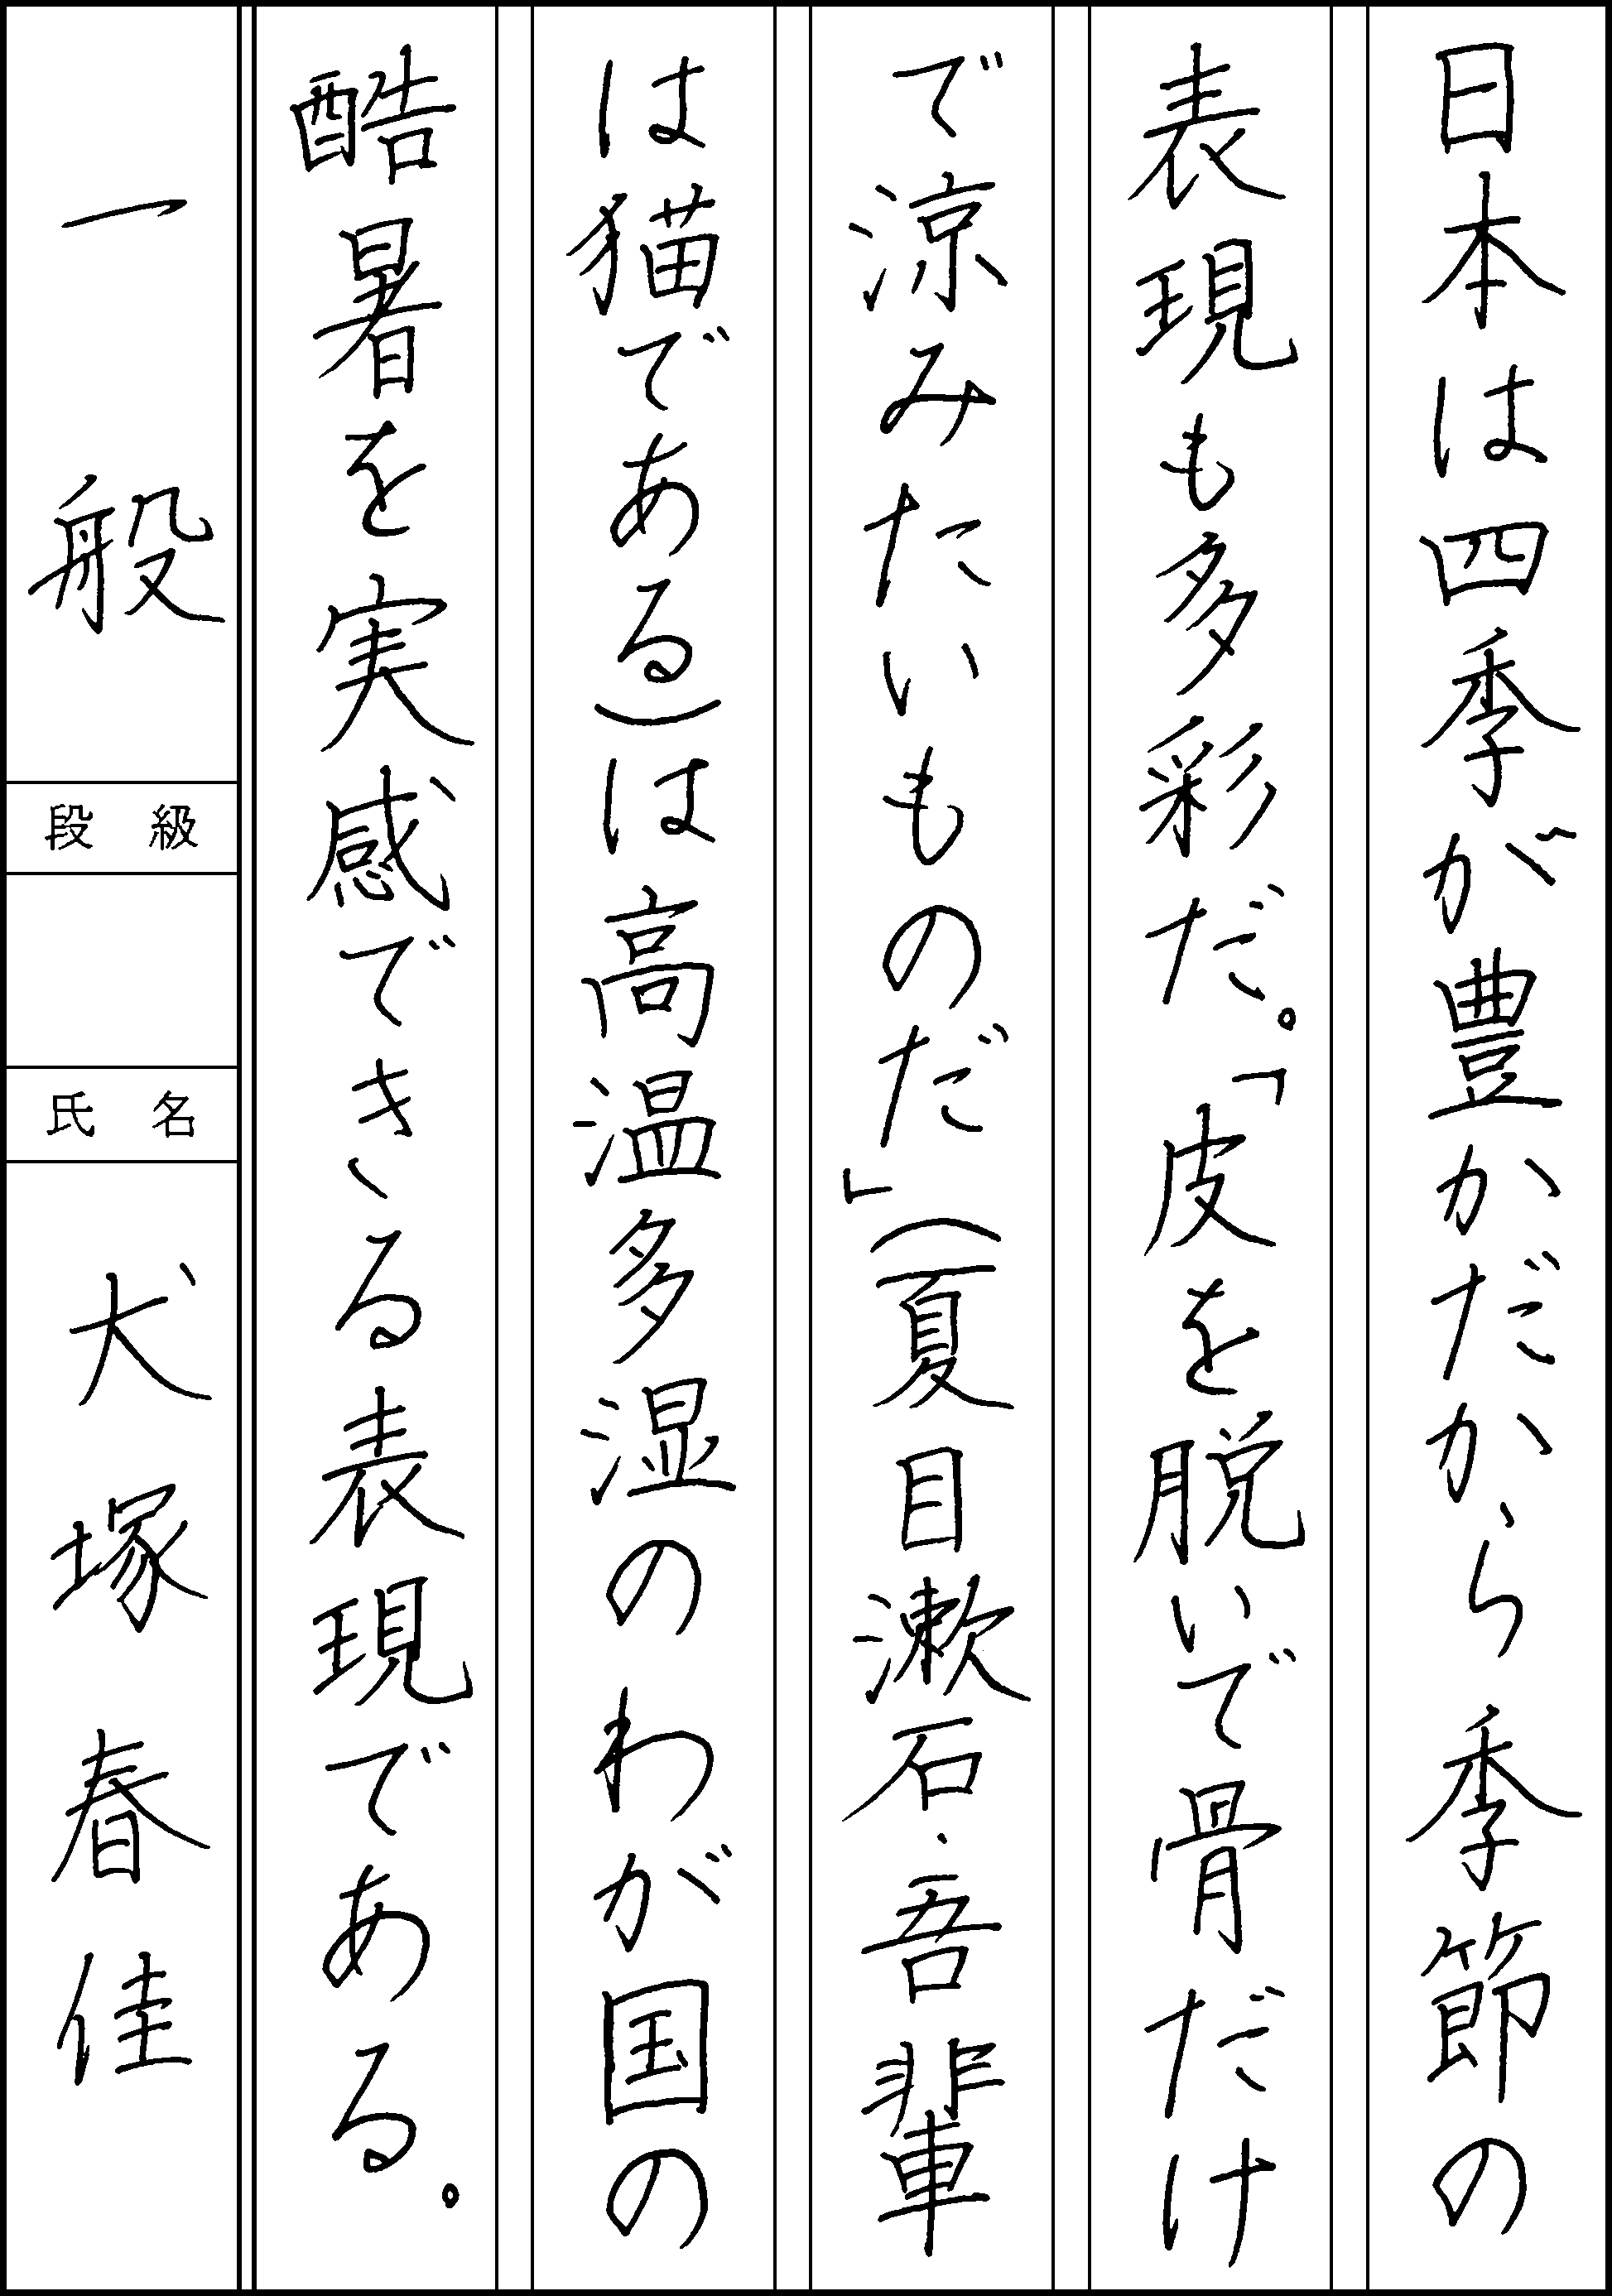 日本は四季が豊かだから季節の
表現も多彩だ。「皮を脱いで骨だけ
で涼みたいものだ」(夏目漱石・吾輩
は猫である)は高温多湿のわが国の
酷暑を実感できる表現である。
一般
段級
氏名
犬塚春佳